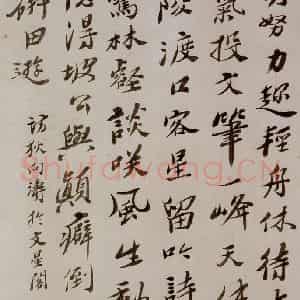 努力趁輕舟休待
氣投文筆一峰天
陵渡口客星留吟詩
林壑談咲風生動
得坡公與顛癖倒
田遊
訪狄向濤於文星閣
Shufawang.CN